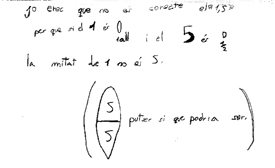 jo crec que no és correcte el 1,5
per que si d 1 és 0 i el 5 és 0
la mitat de 1 no és 5.
5
5
potser si que podria ser.